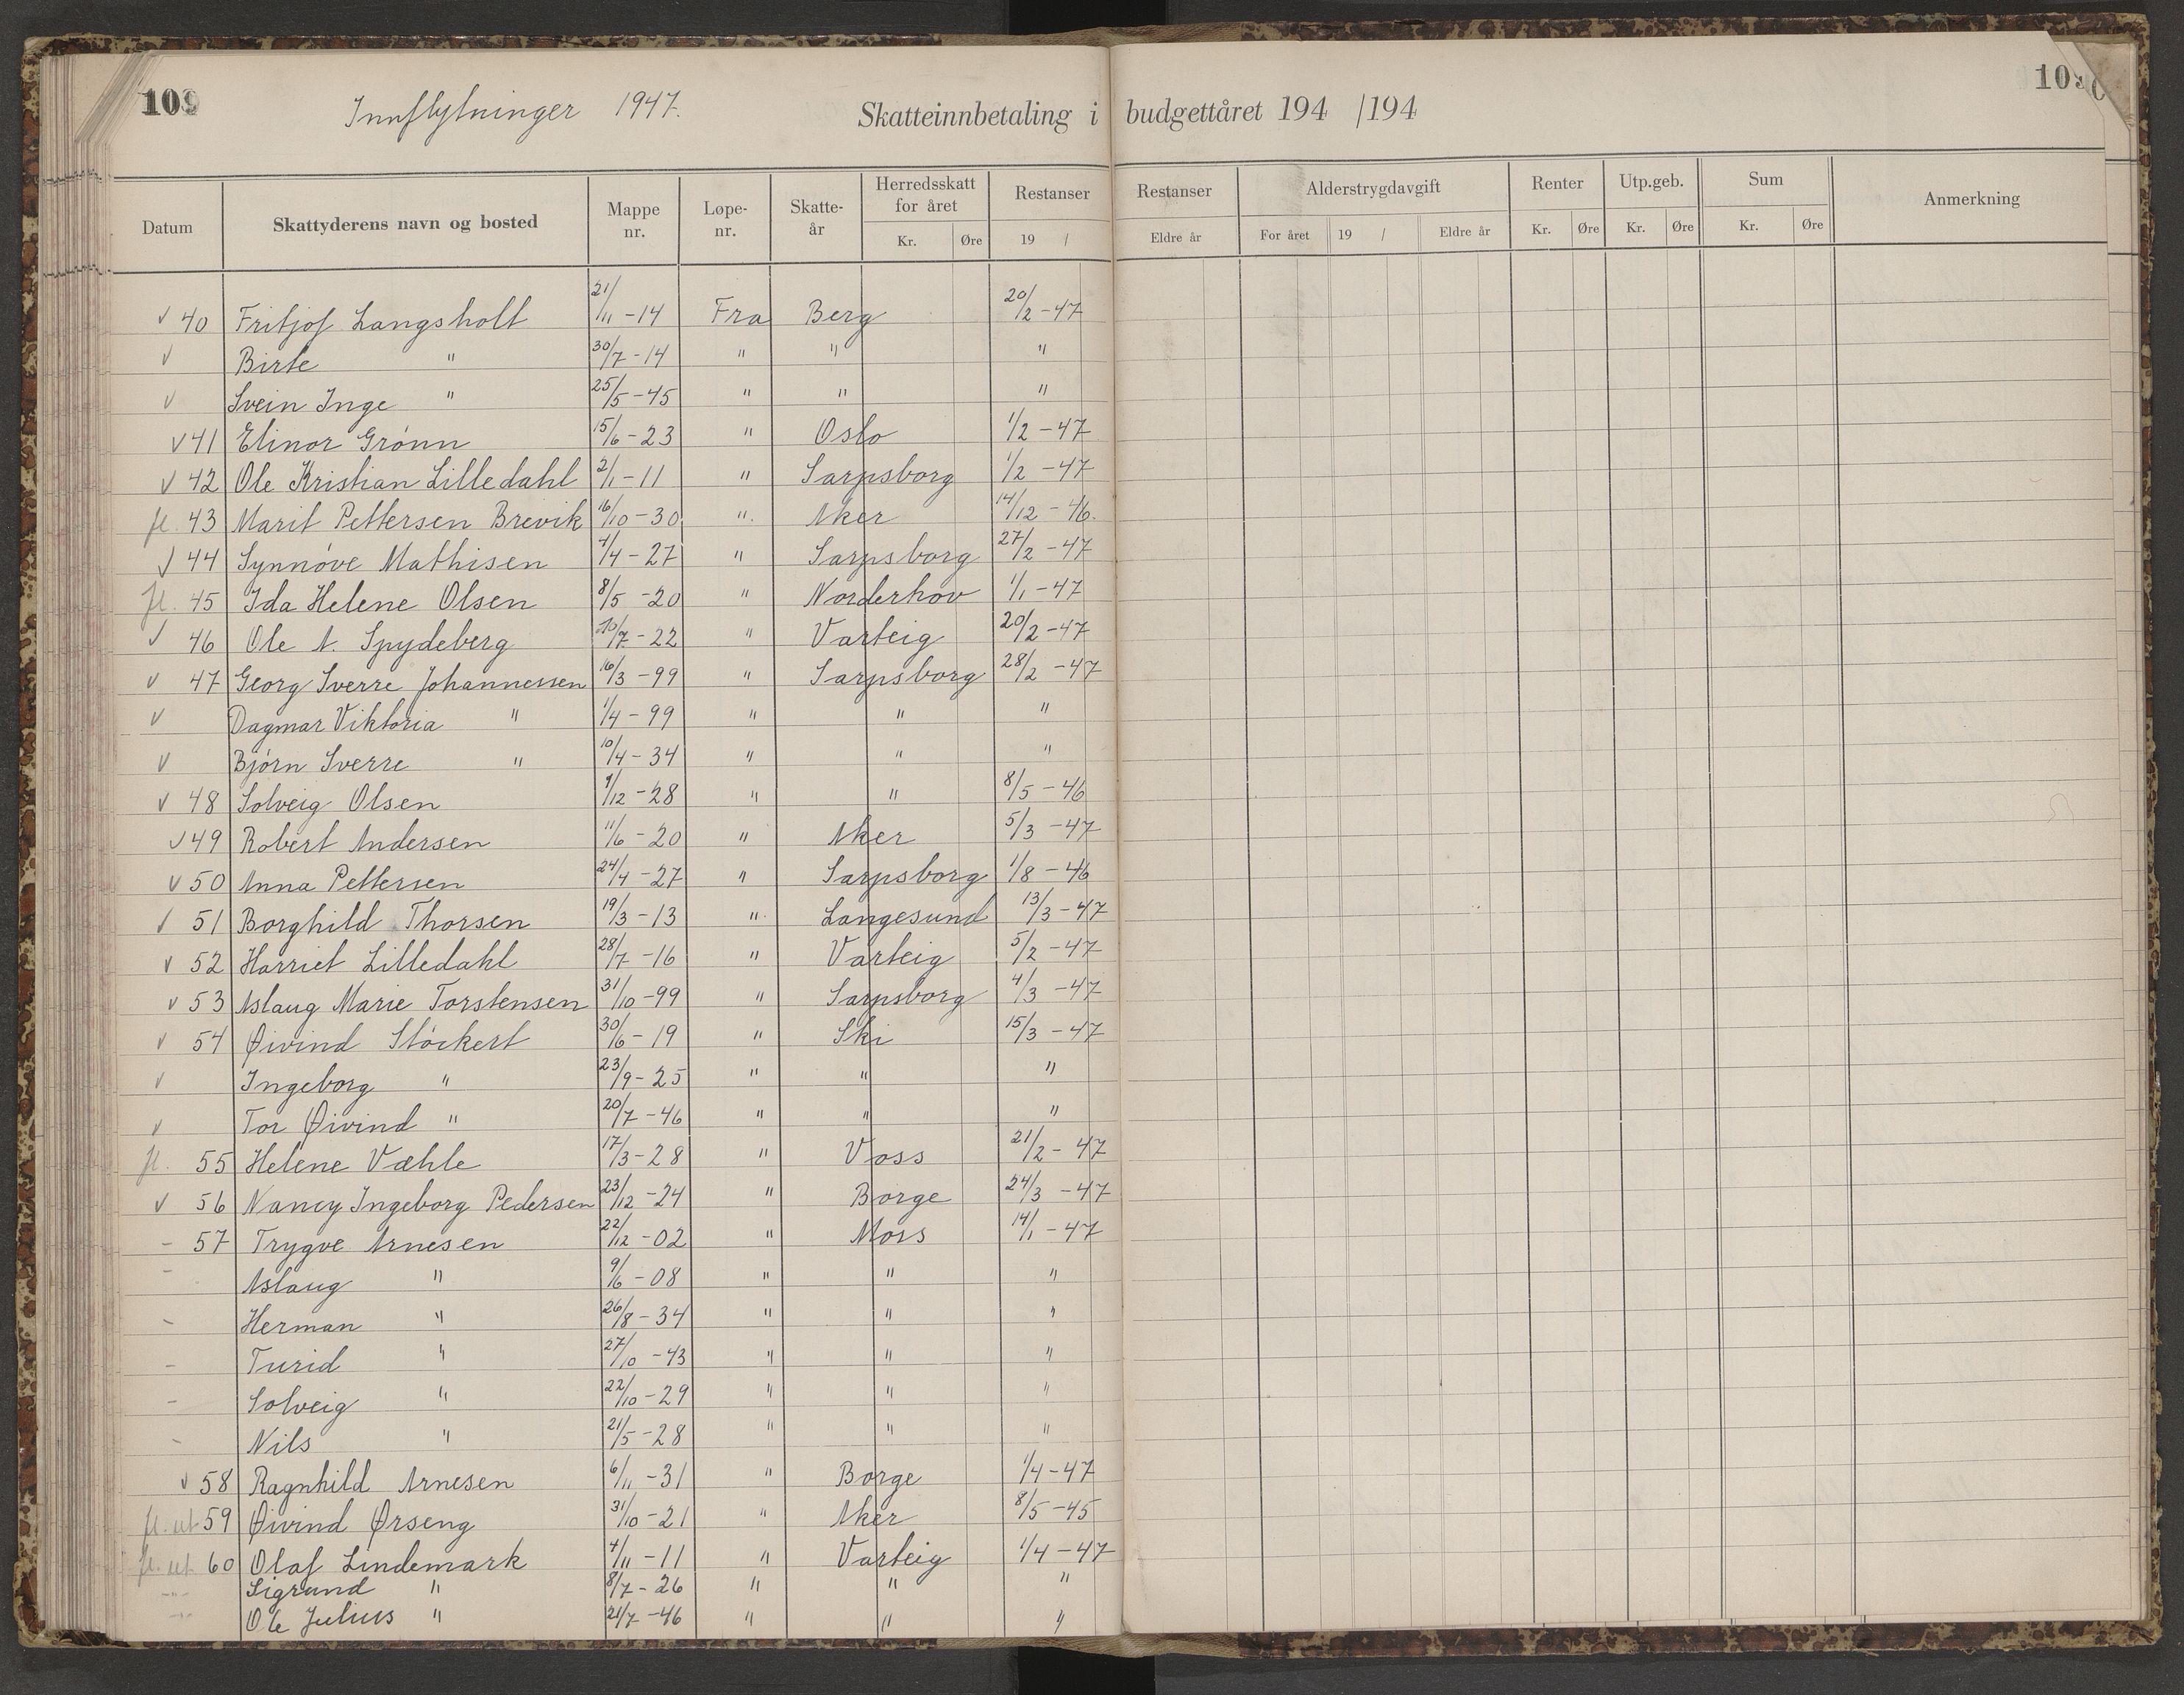 109 Innflytninger 1947. Skatteinnbetaling i budgettåret 194 /194
Datum Skattyderens navn og bosted Mappe nr. Løpe-nr. Skatte-år Herredsskatt for året Kr. Øre Restanser 19 / Restanser Eldre år Alderstrygdavgift For året 19 / Eldre år Renter Kr. Øre Utp.geb. Kr. Øre Sum Kr. Øre Anmerkning
v 40 Fritjof Langsholt 21/11 -14 Fra Berg 20/2 -47
v Birte " 30/7 -14 " " "
v Svein Inge " 25/5 -45 " " "
v 41 Elinor Grónn 15/6 -23 " Oslo 1/2 -47
v 42 Ole Kristian Lilledahl 2/1 -11 " Sarpsborg 1/2 -47
fl. 43 Marit Pettersen Brevik 16/10 -30 " Aker 14/12 -46.
v 44 Synnóve Mathisen 4/4 -27 " Sarpsborg 27/2 -47
fl. 45 Ida Helene Olsen 8/5 -20 " Norderhov 1/1 -47
v 46 Ole A. Spydeberg 20/7 -22 " Varteig 20/2 -47
v 47 Georg Sverre Johannessen 16/3 -99 " Sarpsborg 28/2 -47
v Dagmar Viktoria " 1/4 -99 " " "
v Bjórn Sverre " 10/4 -34 " " "
v 48 Solveig Olsen 9/12 -28 " " 8/5 -46
v 49 Robert Andersen 11/6 -20 " Aker 5/3 -47
v 50 Anna Pettersen 24/4 -27 " Sarpsborg 1/8 -46
v 51 Borghild Thorsen 19/3 -13 " Langesund 13/3 -47
v 52 Harriet Lilledahl 28/7 -16 " Varteig 5/2 -47
v 53 Aslaug Marie Torstensen 31/10 -99 " Sarpsborg 4/3 -47
v 54 Øivind Stóckert 30/6 -19 " Ski 15/3 -47
v Ingeborg " 23/9 -25 " " "
v Tor Øivind " 20/7 -46 " " "
fl. 55 Helene Væhle 17/3 -28 " Voss 21/2 -47
v 56 Nancy Ingeborg Pedersen 23/12 -24 " Borge 24/3 -47
- 57 Trygve Arnesen 22/12 -02 " Moss 14/1 -47
- Aslaug " 9/6 -08 " " "
- Herman " 26/8 -34 " " "
- Turid " 27/10 -43 " " "
- Solveig " 22/10 -29 " " "
- Nils " 21/5 -28 " " "
v 58 Ragnhild Arnesen 6/11 -31 " Borge 1/4 -47
fl. ut 59 Øivind Ørseng 31/10 -21 " Aker 8/5 -45
fl. ut 60 Olaf Lindemark 4/11 -11 " Varteig 1/4 -47
-"- Sigrund " 8/7 -26 " " "
-"- Ole Julius " 21/7 -46 " " "